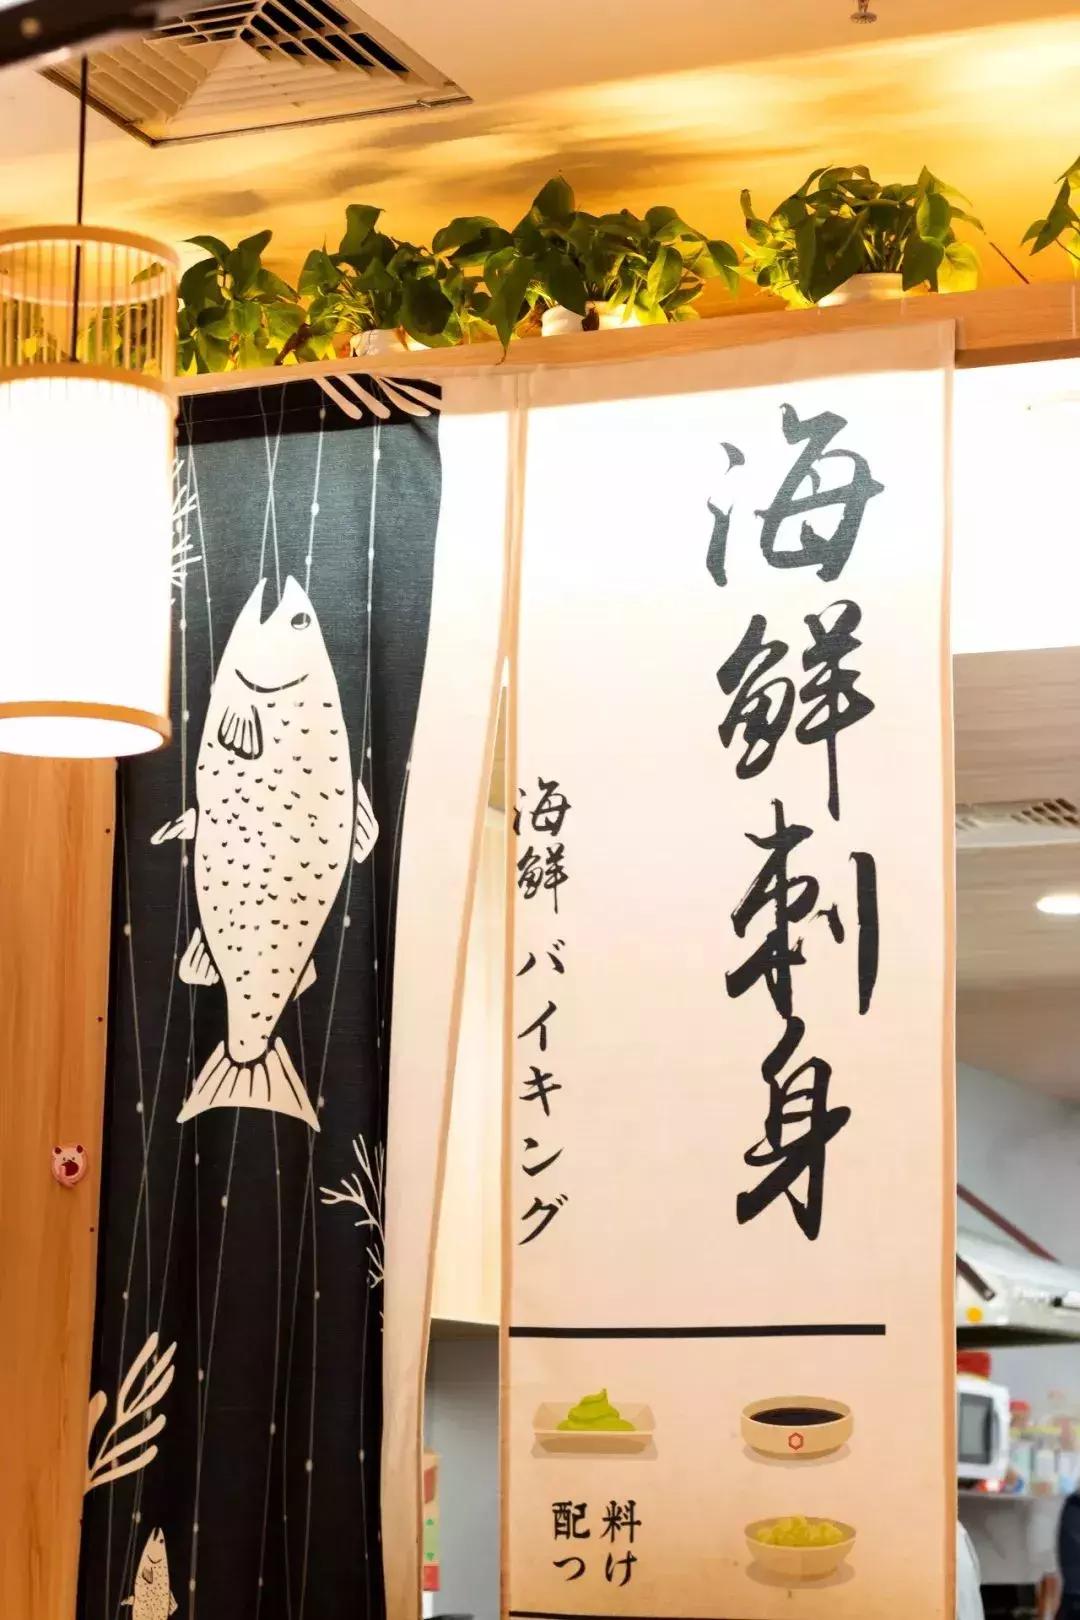 海鮮刺身
海鮮バイキング
料け
配つ